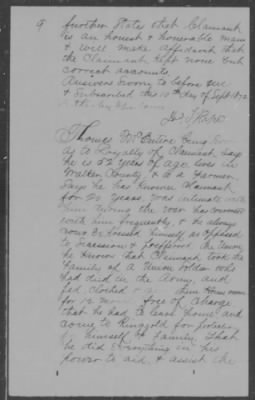 9
further States that Claimant
is an honest & honorable man
& will make affidavit that
the Claimant kept none but
correct accounts.
Answers Sworn to before me
& Subscribed this 10th day of Sept 1872
Thomas McEntire being
as to Loyalty of Claimant, Says
he is 52 years of age lives in
Walker County, & is a Farmer.
Says he has known Claimant
for 20 years. Was intimate with
him during the war has conversed
with him frequently, & he always
expressed himself as opposed
to Secession & preferred the Union
he knows that Claimant took the
Family of a Union Soldier who
had died in the Army, and
fed clothed them
for 12 free of Charge
that he had to leave home and
come to Ringgold for protection
of himself & Family. That
he did everything in his
power to aid & assist the